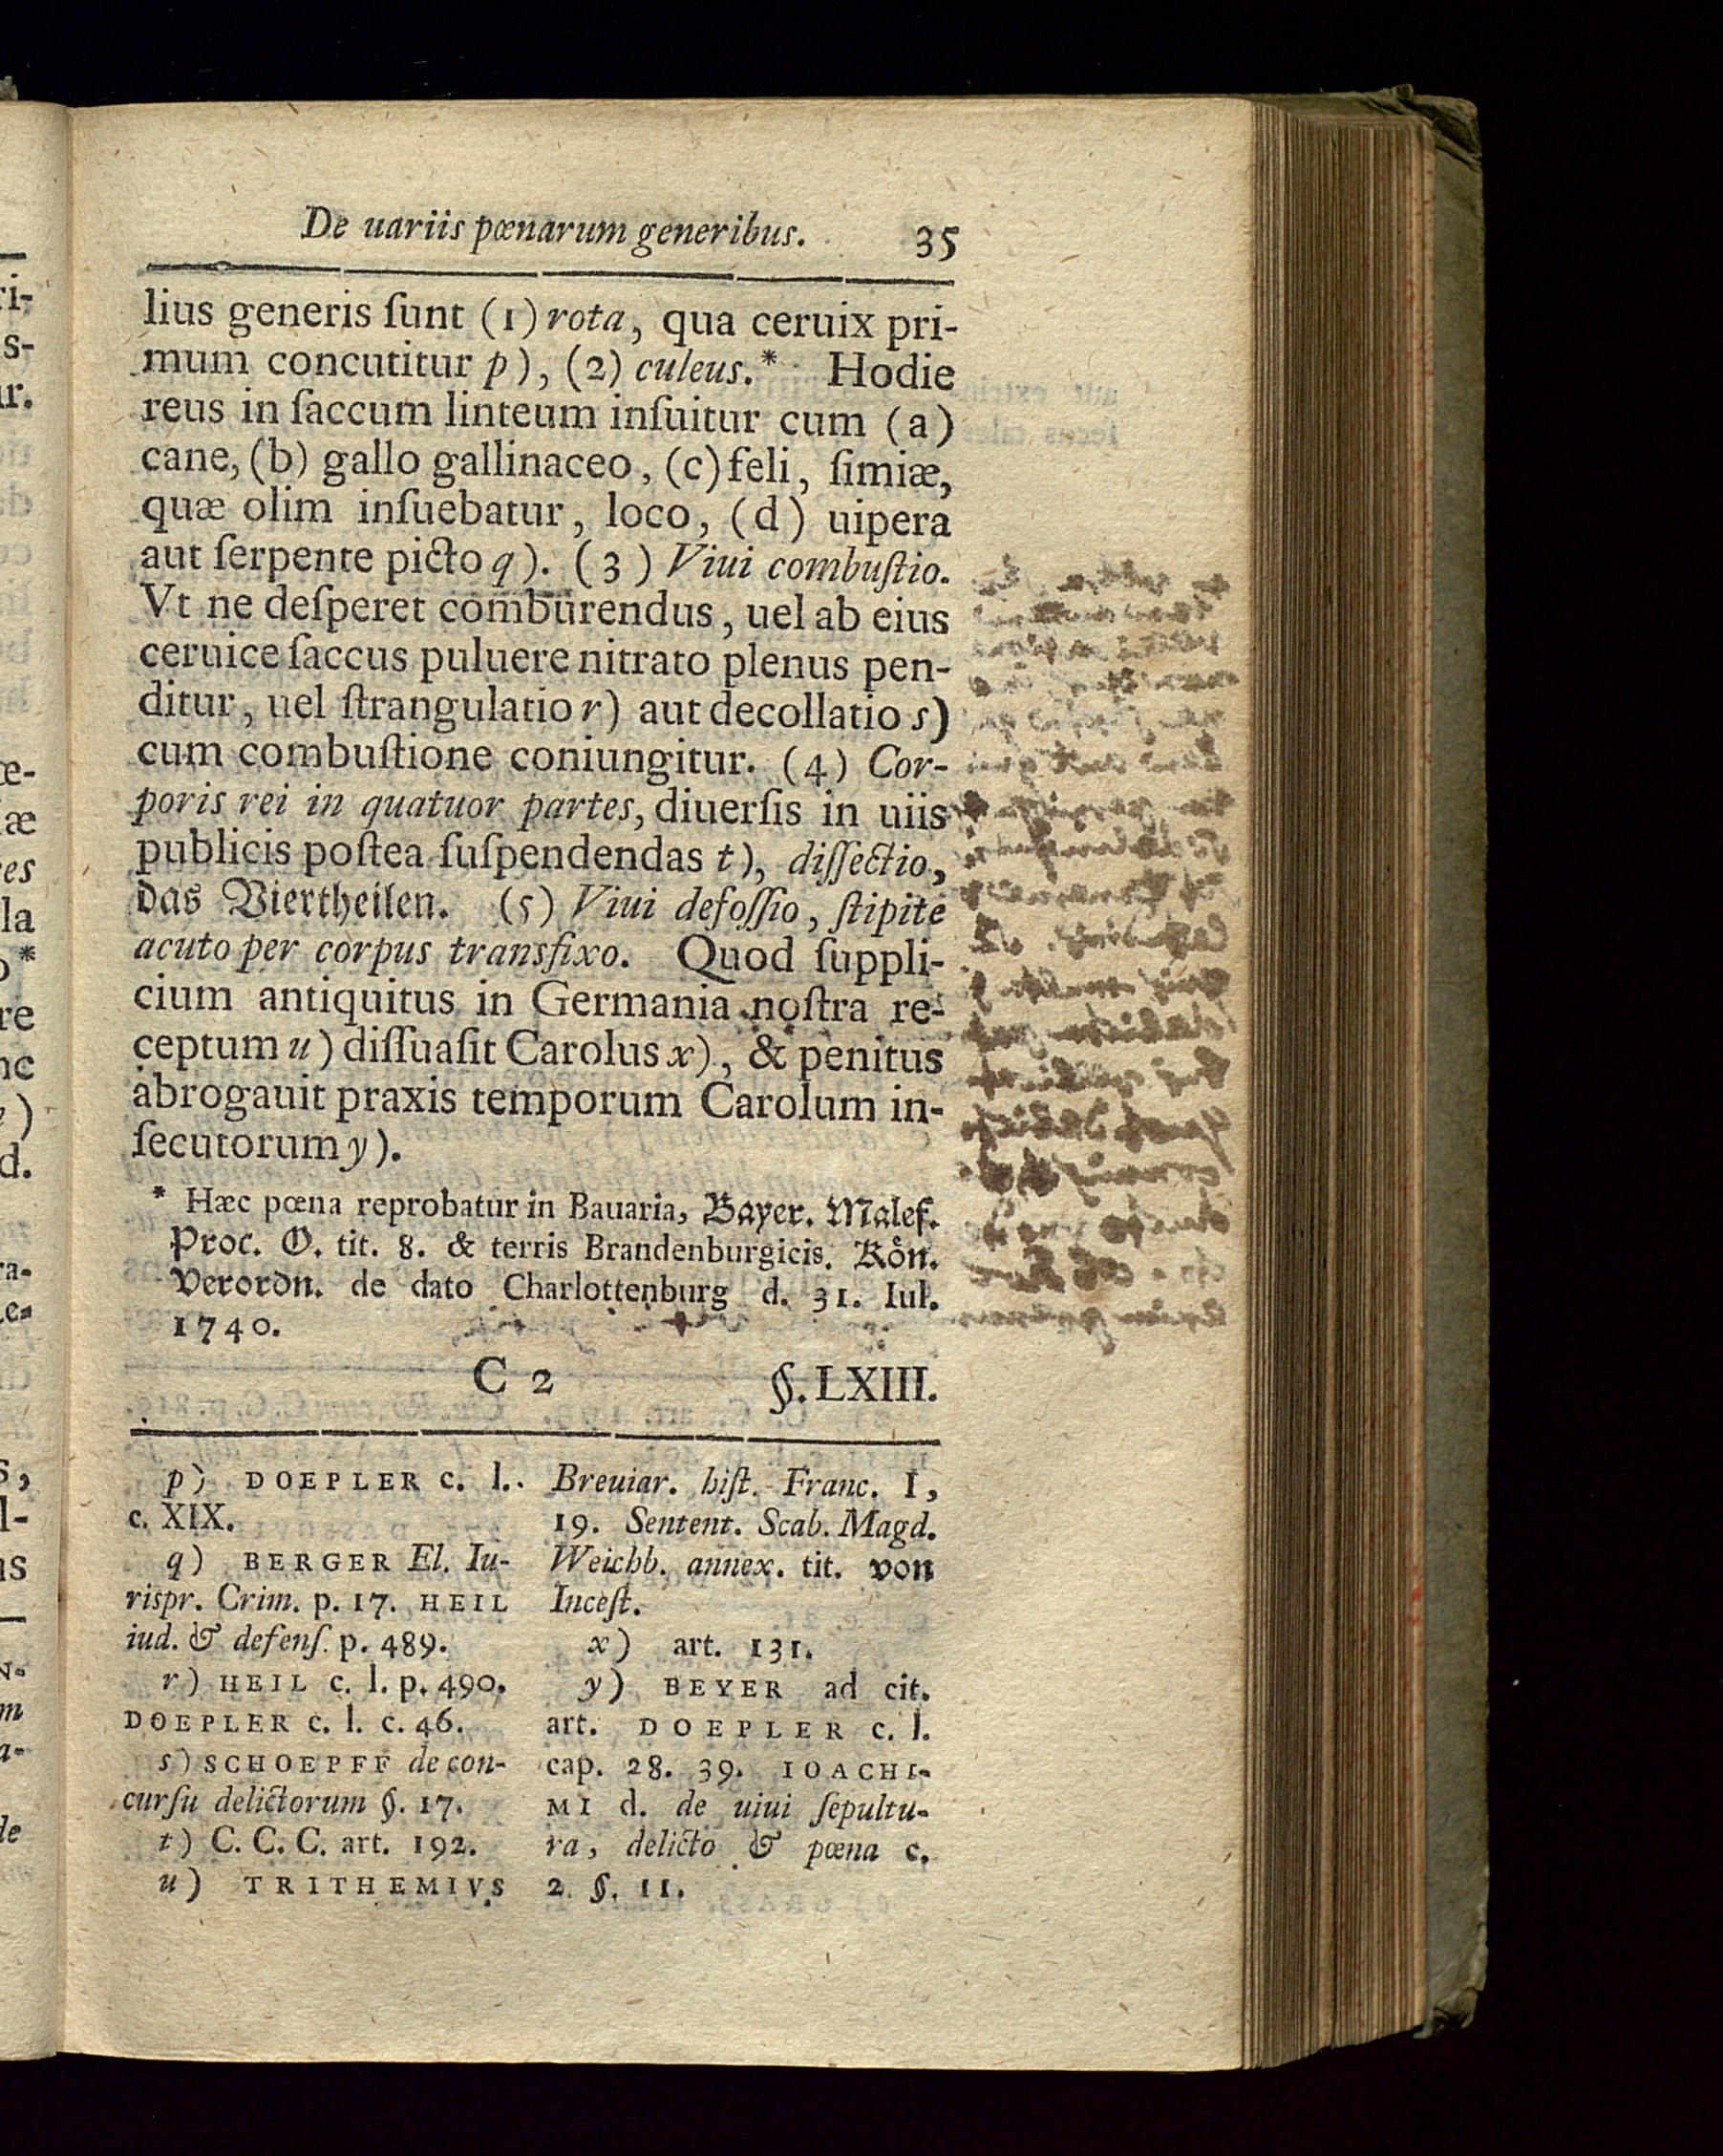 De uariis pœnarum generibus. 35
lius generis ſunt (1) rota, qua ceruix pri-
mum concutitur p), (2) culeus.* Hodie
reus in ſaccum linteum inſuitur cum (a)
cane, (b) gallo gallinaceo, (c) feli, ſimiæ,
quæ olim inſuebatur, loco, (d) uipera
aut ſerpente picto q). (3) Viui combuſtio.
Vt ne deſperet comburendus, uel ab eius
ceruice ſaccus puluere nitrato plenus pen-
ditur, uel ſtrangulatio r) aut decollatio s)
cum combuſtione coniungitur. (4) Cor-
poris rei in quatuor partes, diuerſis in uiis
publicis poſtea ſuſpendendas t), diſſectio,
das Viertheilen. (5) Viui defoſſio, ſtipite
acuto per corpus transfixo. Quod ſuppli-
cium antiquitus in Germania noſtra re-
ceptum u) diſſuaſit Carolus x), & penitus
abrogauit praxis temporum Carolum in-
ſecutorum y).
* Hæc pœna reprobatur in Bauaria, Bayer. Malef.
Proc. O. tit. 8. & terris Brandenburgicis. Kön.
Verordn. de dato Charlottenburg d. 31. Iul.
1740.
C 2 §. LXIII.
p) DOEPLER c. l.
c. XIX.
q) BERGER El. Iu-
rispr. Crim. p. 17. HEIL
iud. & defenſ. p. 489.
r) HEIL c. l. p. 490.
DOEPLER c. l. c. 46.
s) SCHOEPFF de con-
curſu delictorum §. 17.
t) C. C. C. art. 192.
u) TRITHEMIVS
Breuiar. hiſt. Franc. I,
19. Sentent. Scab. Magd.
Weichb. annex. tit. von
Inceſt.
x) art. 131.
y) BEYER ad cit.
art. DOEPLER c. l.
cap. 28. 39. IOACHI-
MI d. de uiui ſepultu-
ra, delicto & pœna c.
2. §. 11.